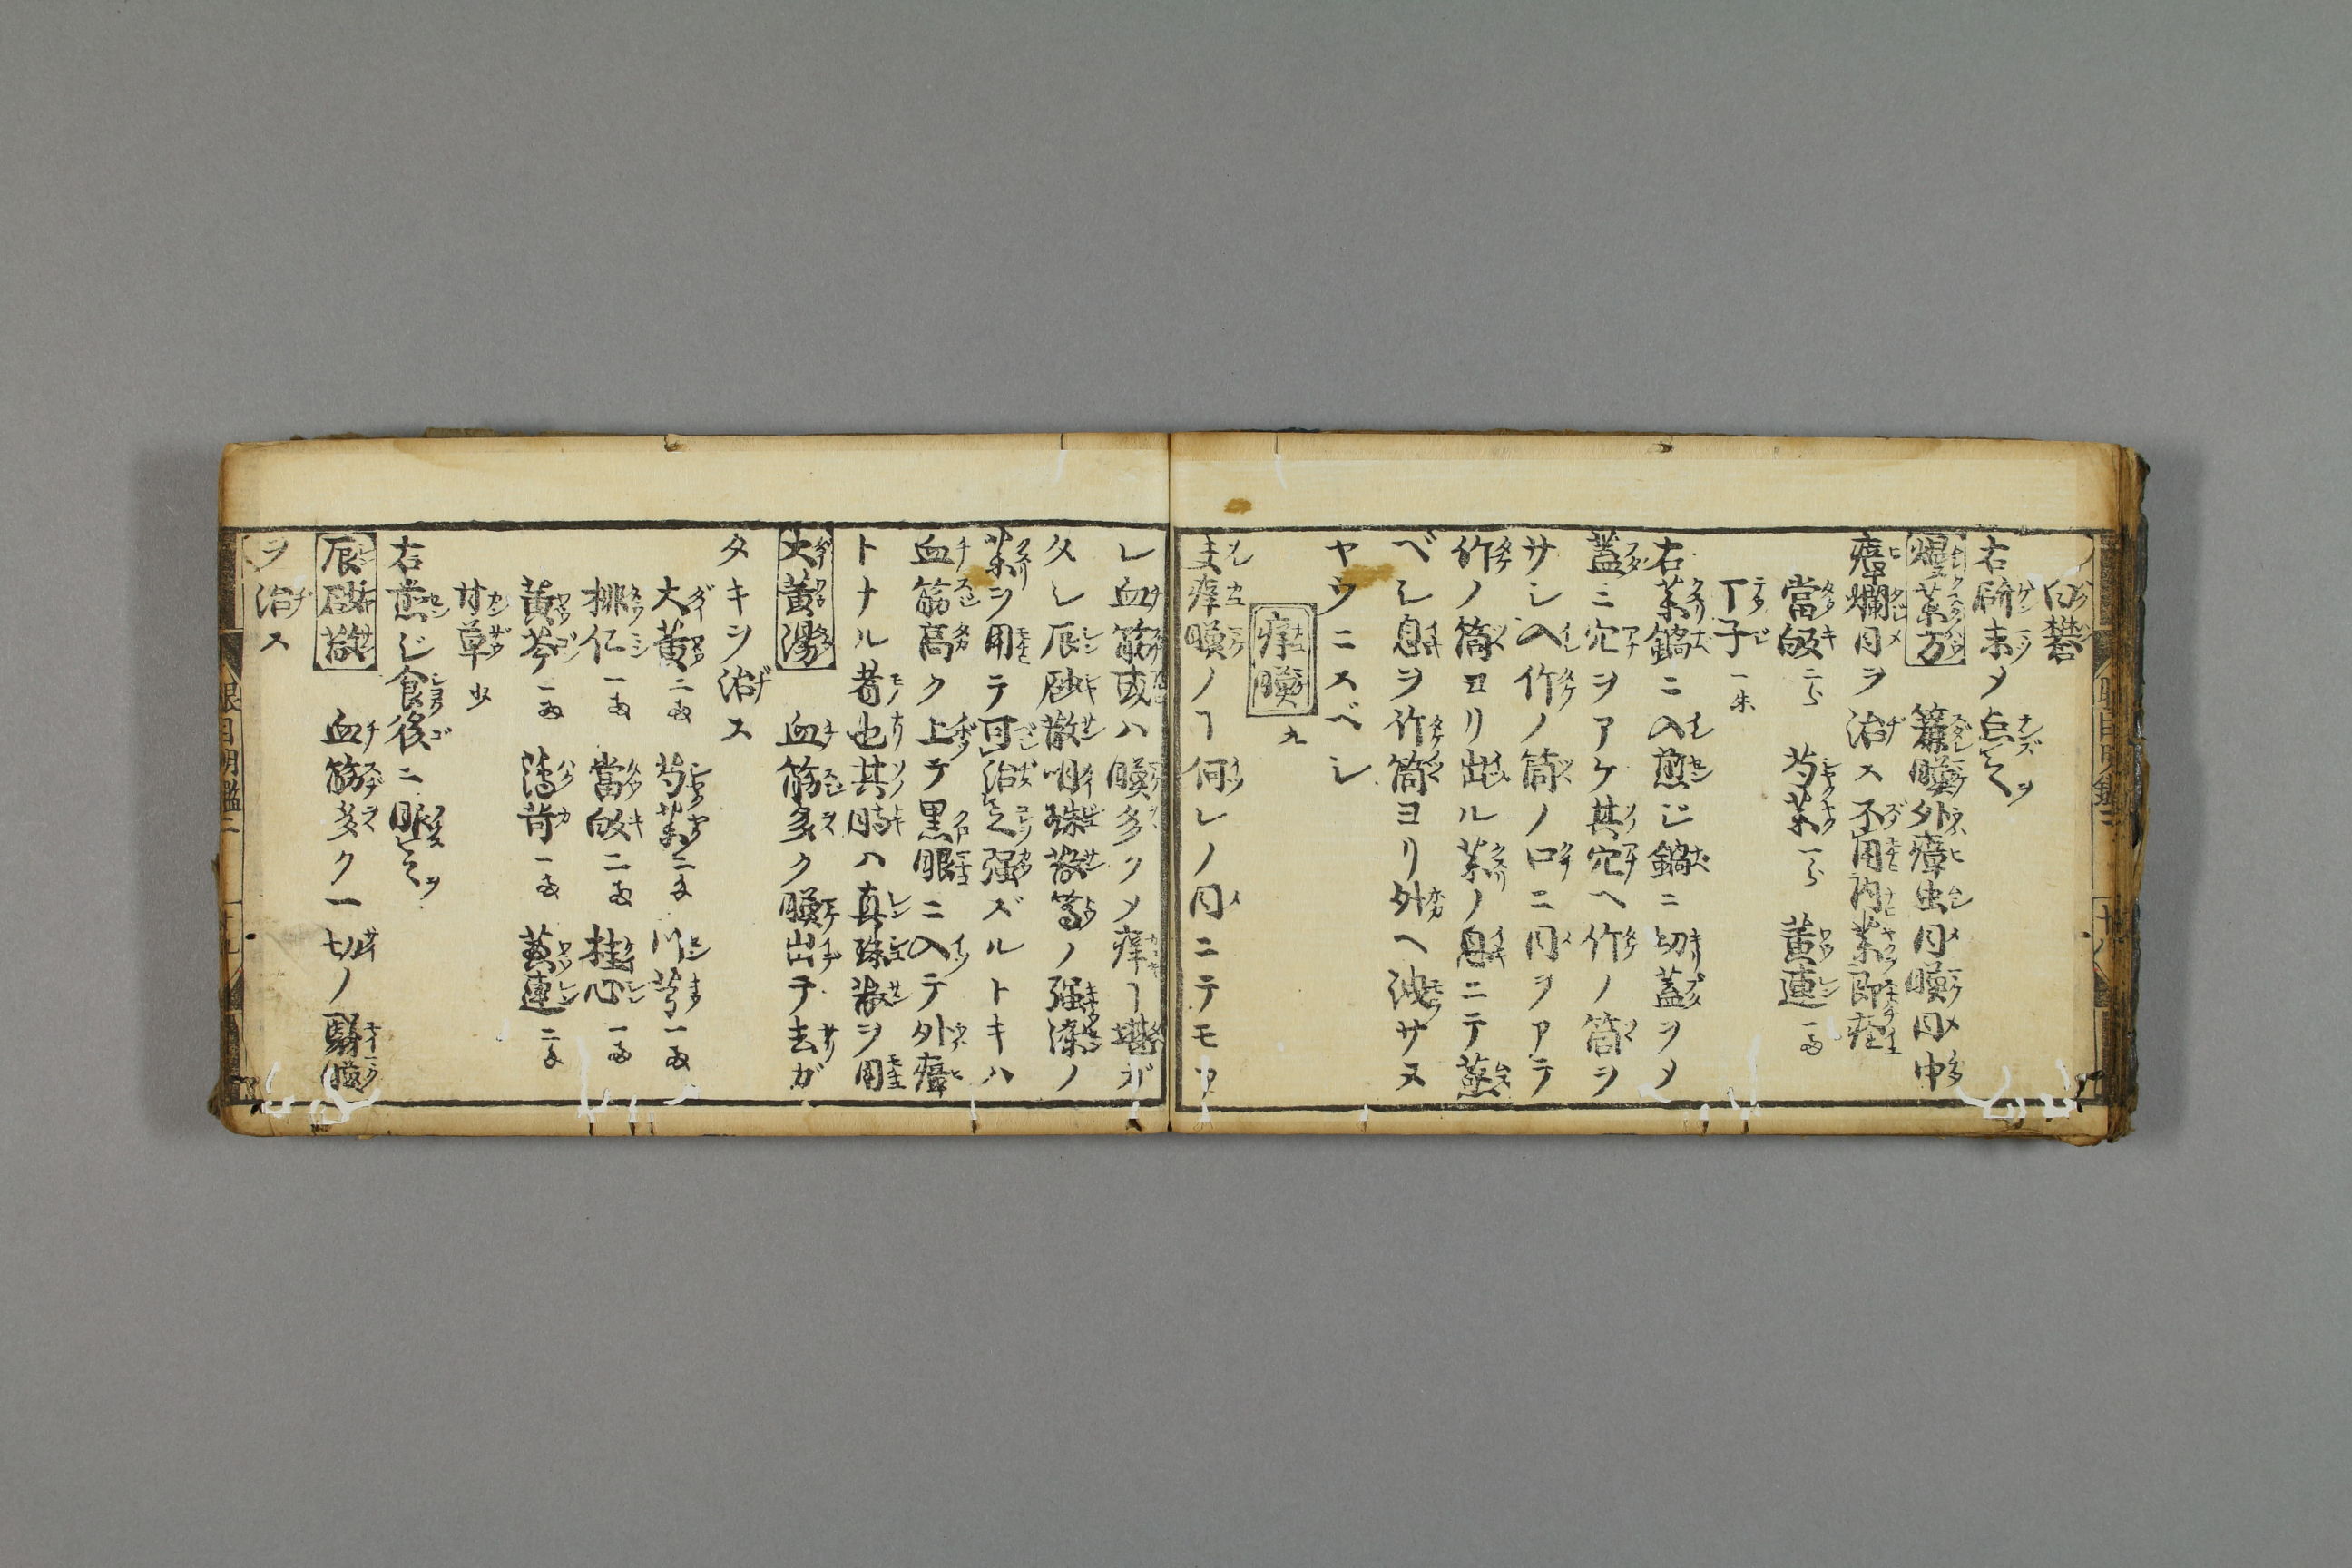 白礬
右研末メ点之
煙薬方 簾膜外瘴虫目膜目中
瘴爛目ヲ治ス不用内薬即痊
當皈二分 芍薬一分 黄連一両
丁子一朱
右薬鍋ニ入煎ジ鍋ニ切蓋ヲメ
蓋ニ穴ヲアケ其穴ヘ竹ノ筒ヲ
サシ入竹ノ筒ノ口ニ目ヲアテ
竹ノ筒ヨリ出ル薬ノ息ニテ蒸
ベシ息ヲ竹筒ヨリ外ヘ洩サヌ
ヤウニスベシ
痒膜 九
夫痒膜ノヿ何レノ目ニテモ
レ血筋或ハ膜多クメ痒ヿ堪ガ
タシ辰砂散明珠散等ノ強渁ノ
薬ヲ用テ可治之強ズルトキハ
血筋高ク上テ黒眼ニ入テ外瘴
トナル者也其時ハ真珠散ヲ用
大黄湯 血筋多ク膜出テ去ガ
タキヲ治ス
大黄二両 芍薬二両 川芎一両
桃仁一両 當皈二両 桂心一両
黄芩一両 薄荷一両 黄連二両
甘草少
右煎ジ食後ニ服之
辰砂散 血筋多ク一切ノ翳膜
ヲ治ス
眼目明鑑二 十九
眼目明鑑二 十八